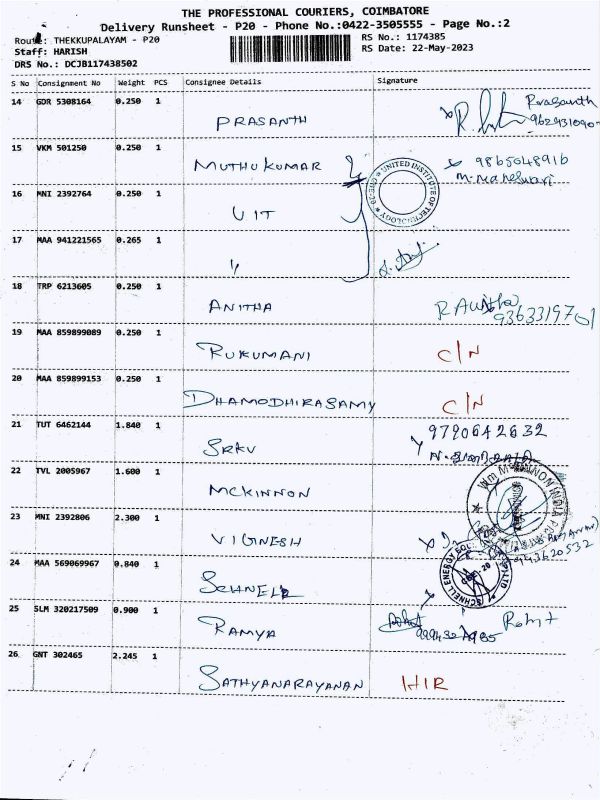 THE PROFESSIONAL COURIERS, COIMBATORE
Delivery Runsheet - P20 - Phone No.:0422-3505555 - Page No.:2
Route: THEKKUPALAYAM - P20
Staff: HARISH
DRS No.: DCJB117438502
RS No.: 1174385
RS Date: 22-May-2023
S No Consignment No Weight PCS Consignee Details Signature
14 GDR 5308164 0.250 1 PRASANTH Prasanth
15 VKM 501250 0.250 1 MUTHUKUMAR 9865048916
M. Maheswari
16 MNI 2392764 0.250 1 UIT
UNITED INSTITUTE OF TECHNOLOGY
17 MAA 941221565 0.265 1 〃
18 TRP 6213605 0.250 1 ANITHA
9363319701
19 MAA 859899089 0.250 1 RUKUMANI C/N
20 MAA 859899153 0.250 1 DHAMODHIRASAMY C/N
21 TUT 6462144 1.840 1 SRKV 9790642632
22 TVL 2005967 1.600 1 MCKINNON
23 MNI 2392806 2.300 1 VIGNESH
24 MAA 569069967 0.840 1 SCHNELL
25 SLM 320217509 0.900 1 RAMYA Rohit
26 GNT 302465 2.245 1 SATHYANARAYANAN HIR